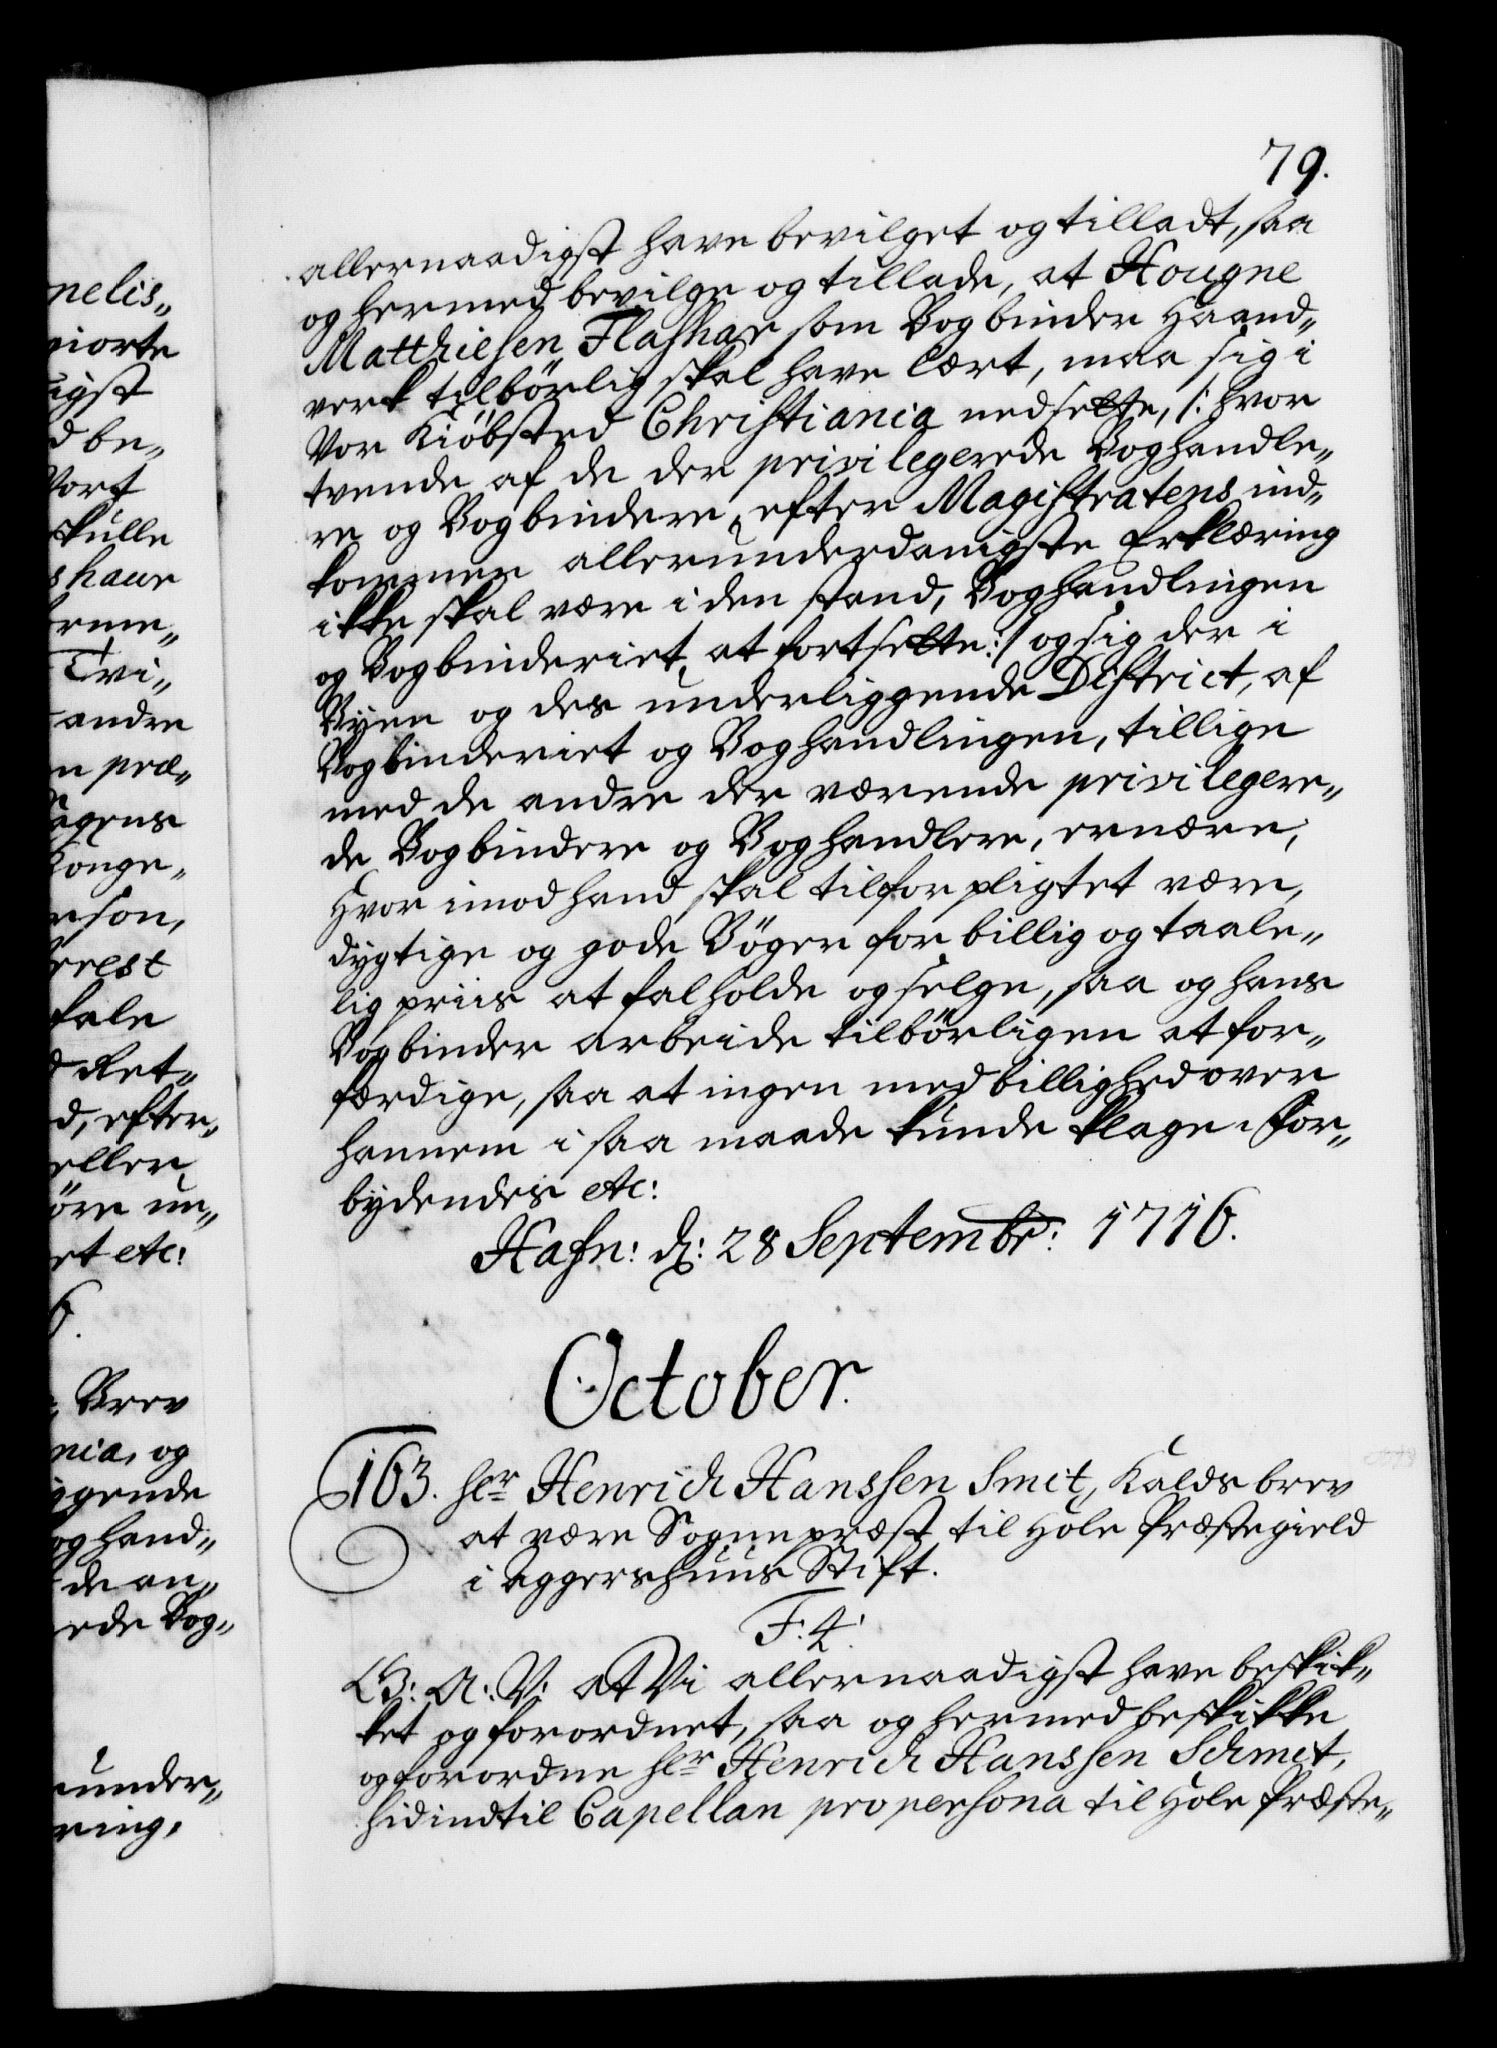 79.
allernaadigst have bevilget og tilladt, saa
og hermed bevilge og tillade, at Hougne
Matthiesen Flashar som Bogbinder Haand„
verk tilbörlig skal have lært, maa sig i
Vor Kiöbsted Christiania nedsette, /: hvor
tvende af de der privilegerede Boghandle„
re og Bogbindere, efter Magistratens ind„
kommen allerunderdanigste Erklæring
ikke skal være i den stand, Boghandlingen
og Bogbinderiet at fortsette:/ og sig der i
Byen og des underliggende District, af
Bogbinderiet og Boghandlingen, tillige
med de andre der værende privilegere„
de Bogbindere og Boghandlere, ernære;
Hvor imod hand skal tilforpligtet være,
dygtige og gode Böger for billig og taale„
lig priis at falholde og selge, saa og hans
Bogbinder arbeide tilbörligen at for„
færdige, saa at ingen med billighed over
hannem i saa maade kunde klage. For„
bydendes etc:
Hafn: d: 28 Septembr: 1716.
October.
163. Hr Henrich Hanssen Smit, Kalds brev
at være Sogneprest til Hole Præstegield
i Aggershuus Stift.
F: 4.
G: A: V: At Vi allernaadigst have beskik„
ket og forordnet, saa og hermed beskikke
og forordne Hr Henrich Hanssen Schmit,
hidindtil Capellan pro persona til Hole Præste„
nelis„
giorte
igst
d be„
Vort
skulle
s haur
orme„
Tvi„
andre
n præ„
agens
Konge„
rson,
erest
fale
d Ret„
d, efter„
eller
öre un„
et etc:
6.
Brev
nia, og
ggende
oghand„
de an„
rede Bog„
under„
ring,